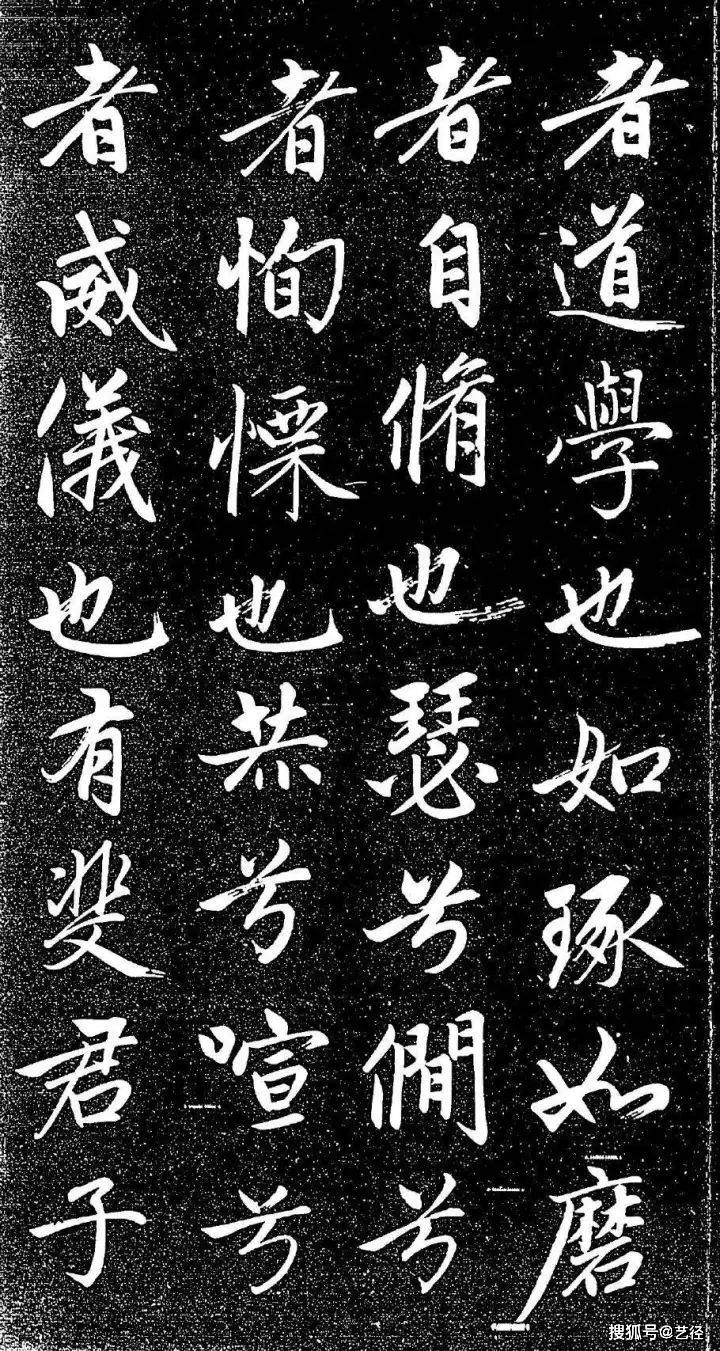 者道學也如琢如磨
者自脩也瑟兮僩兮
者恂慄也赫兮喧兮
者威儀也有斐君子
搜狐号@艺径